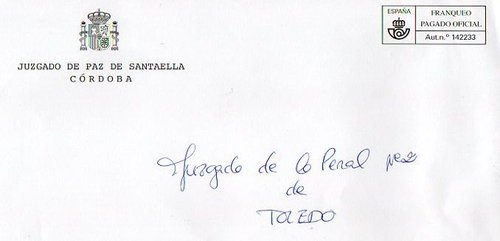 JUZGADO DE PAZ DE SANTAELLA
CÓRDOBA
ESPAÑA
FRANQUEO
PAGADO OFICIAL
Aut.n.º 142233
Juzgado de lo Penal nº 2
de
TOLEDO